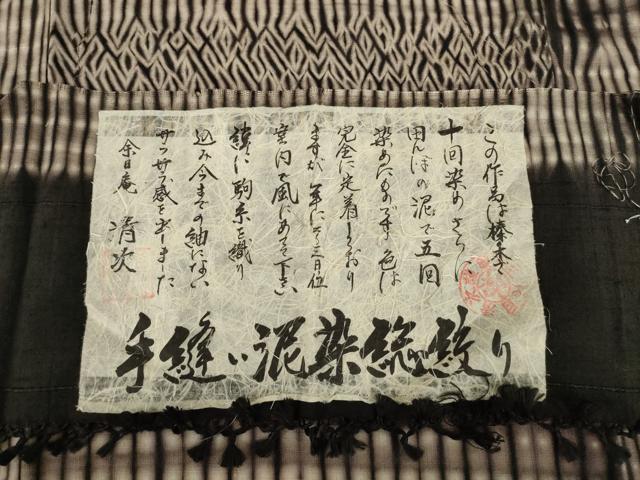 この作品は榛の木で
十回染め さらに
田んぼの泥で五回
染めたものです 色は
完全に定着しており
ますが 年に2〜3日位
室内で風にあてて下さい
緯に駒糸を織り
込み今までの紬にない
サラサラ感を出しました
余日庵 清次
手縫い泥染総絞り